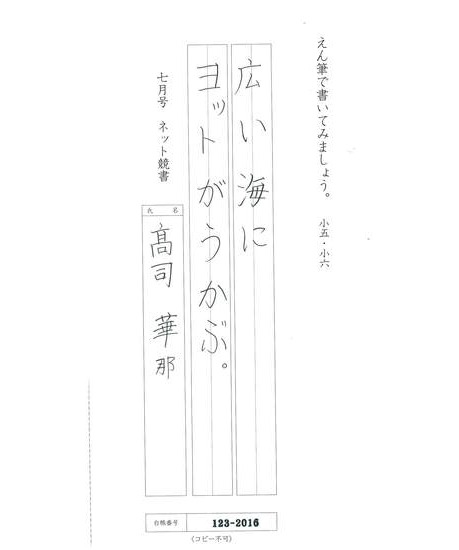 えん筆で書いてみましょう。 小五・小六
広い海に
ヨットがうかぶ。
七月号 ネット競書
氏名
髙司 華那
台帳番号 123-2016
(コピー不可)